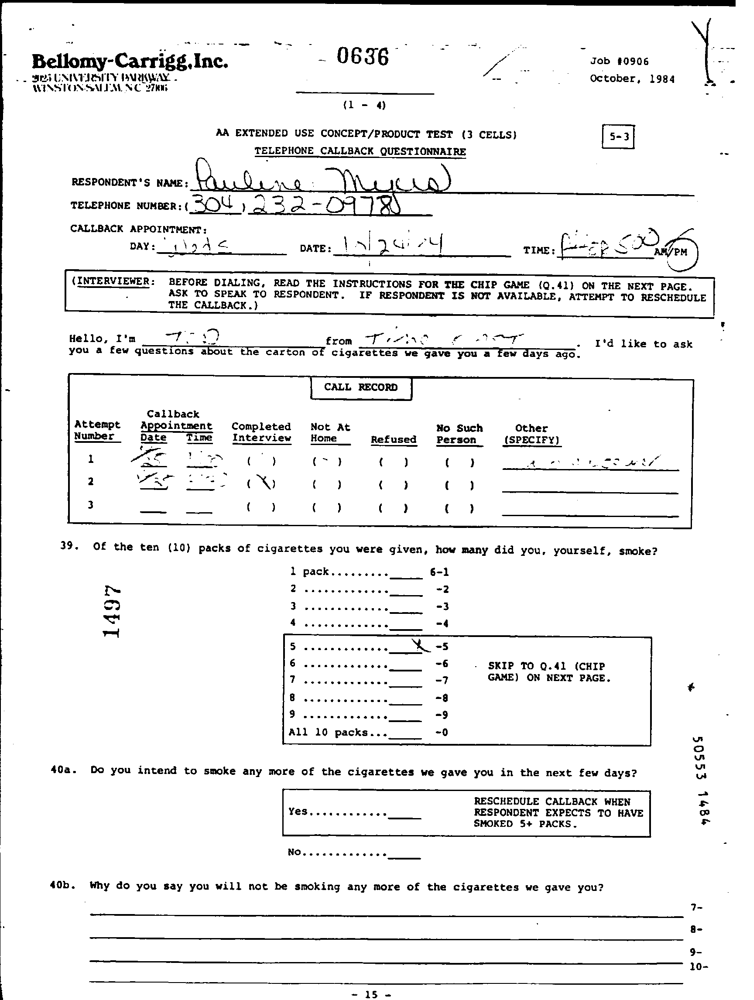 Bellomy-Carrigg, Inc.
UNIVERSITY PARKWAY
WINSTON-SALEM, NC 27106
0636
Job #0906
October, 1984
(1 - 4)
AA EXTENDED USE CONCEPT/PRODUCT TEST (3 CELLS)
5-3
TELEPHONE CALLBACK QUESTIONNAIRE
RESPONDENT'S NAME: Pauline
TELEPHONE NUMBER: (304) 232-0978
CALLBACK APPOINTMENT:
DAY: DATE: TIME: 500 AM/PM
(INTERVIEWER: BEFORE DIALING, READ THE INSTRUCTIONS FOR THE CHIP GAME (Q.41) ON THE NEXT PAGE.
ASK TO SPEAK TO RESPONDENT. IF RESPONDENT IS NOT AVAILABLE, ATTEMPT TO RESCHEDULE
THE CALLBACK.)
Hello, I'm from . I'd like to ask
you a few questions about the carton of cigarettes we gave you a few days ago.
CALL RECORD
Attempt Number Callback Appointment Date Time Completed Interview Not At Home Refused No Such Person Other (SPECIFY)
1 ( ) ( ) ( ) ( )
2 (X) ( ) ( ) ( )
3 ( ) ( ) ( ) ( )
39. Of the ten (10) packs of cigarettes you were given, how many did you, yourself, smoke?
1 pack......... 6-1
2 ............. -2
3 ............. -3
4 ............. -4
5 ............. X -5
6 ............. -6 SKIP TO Q.41 (CHIP
7 ............. -7 GAME) ON NEXT PAGE.
8 ............. -8
9 ............. -9
All 10 packs... -0
1497
40a. Do you intend to smoke any more of the cigarettes we gave you in the next few days?
Yes............ RESCHEDULE CALLBACK WHEN
RESPONDENT EXPECTS TO HAVE
SMOKED 5+ PACKS.
No.............
50553 1484
40b. Why do you say you will not be smoking any more of the cigarettes we gave you?
7-
8-
9-
10-
- 15 -